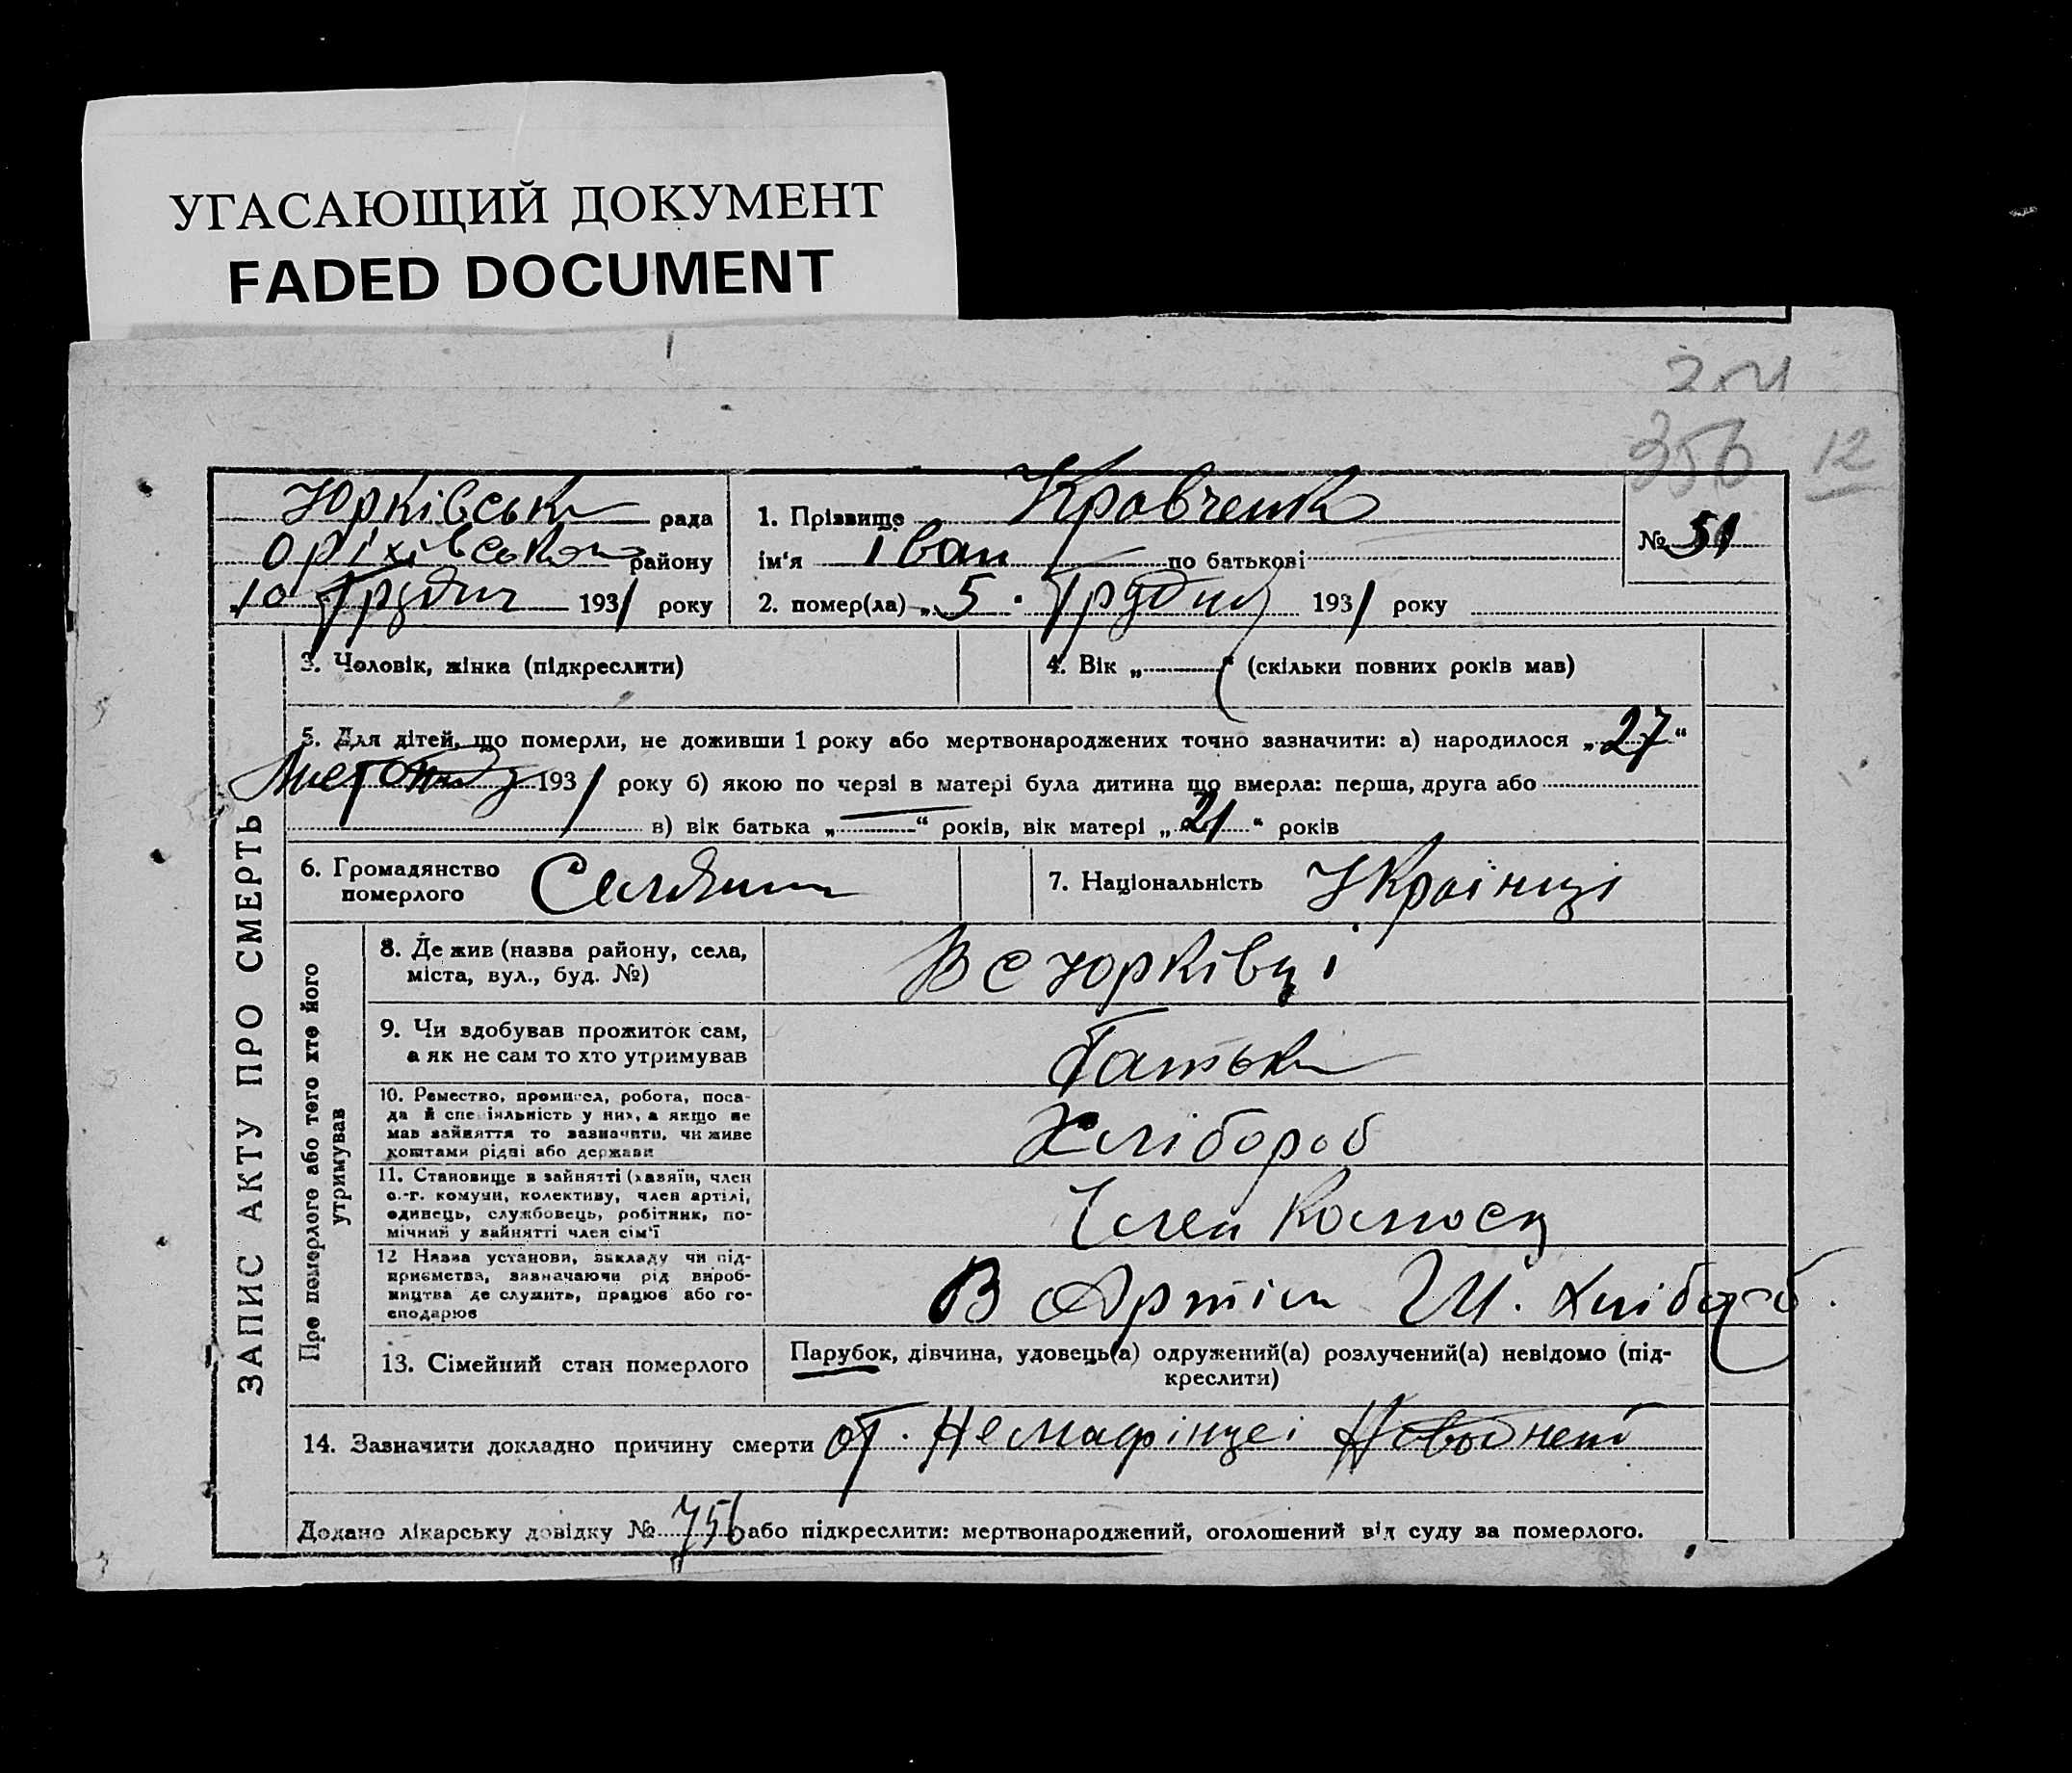 УГАСАЮЩИЙ ДОКУМЕНТ
FADED DOCUMENT
356 12
Юрківська рада
Оріхівського району
10 Грудня 1931 року
1. Прізвище Кравченко
ім'я Іван по батькові
2. помер(ла) „5" Грудня 1931 року
№ 51
ЗАПИС АКТУ ПРО СМЕРТЬ
3. Чоловік, жінка (підкреслити)
4. Вік „ " (скільки повних років мав)
5. Для дітей, що померли, не доживши 1 року або мертвонароджених точно зазначити: а) народилося „27"
Листопад 1931 року б) якою по черзі в матері була дитина що вмерла: перша, друга або
в) вік батька „—" років, вік матері „21" років
6. Громадянство
померлого Селянин
7. Національність Українці
Про померлого або того хто його
утримував
8. Де жив (назва району, села,
міста, вул., буд. №)
В с Юрківці
9. Чи вдобував прожиток сам,
а як не сам то хто утримував
Батько
10. Ремество, промисел, робота, поса-
да й спеціяльність у них, а якщо не
мав зайняття то зазначити, чи живе
коштами рідні або держави
Хлібороб
11. Становище в зайнятті (хазяїн, член
с.-г. комуни, колективу, член артілі,
одинець, службовець, робітник, по-
мічний у зайнятті член сім'ї
Член
12 Назва установи, закладу чи під-
приємства, зазначаючи рід вироб-
ництва де служить, працює або го-
сподарює
В Артіли Хлібороб.
13. Сімейний стан померлого
Парубок, дівчина, удовець(а) одружений(а) розлучений(а) невідомо (під-
креслити)
14. Зазначити докладно причину смерти от.
Додано лікарську довідку № 756 або підкреслити: мертвонароджений, оголошений від суду за померлого.